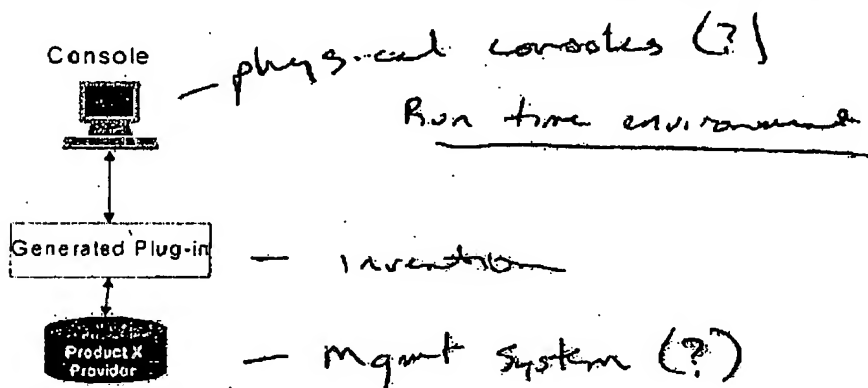 Console
— physical consoles (?)
Run time environment
Generated Plug-in
— invention
Product X
Provider
— Mgmt System (?)